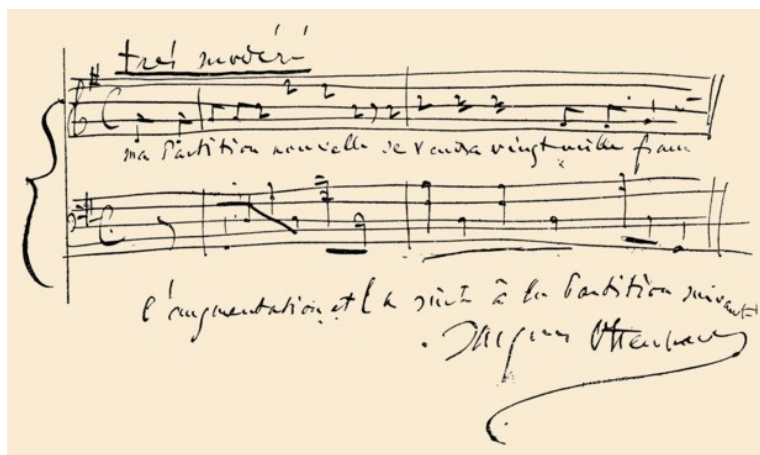 très modéré
ma Partition nouvelle se vendra vingt mille franc
l'augmentation et la suite à la Partition suivante
Jacques Offenbach